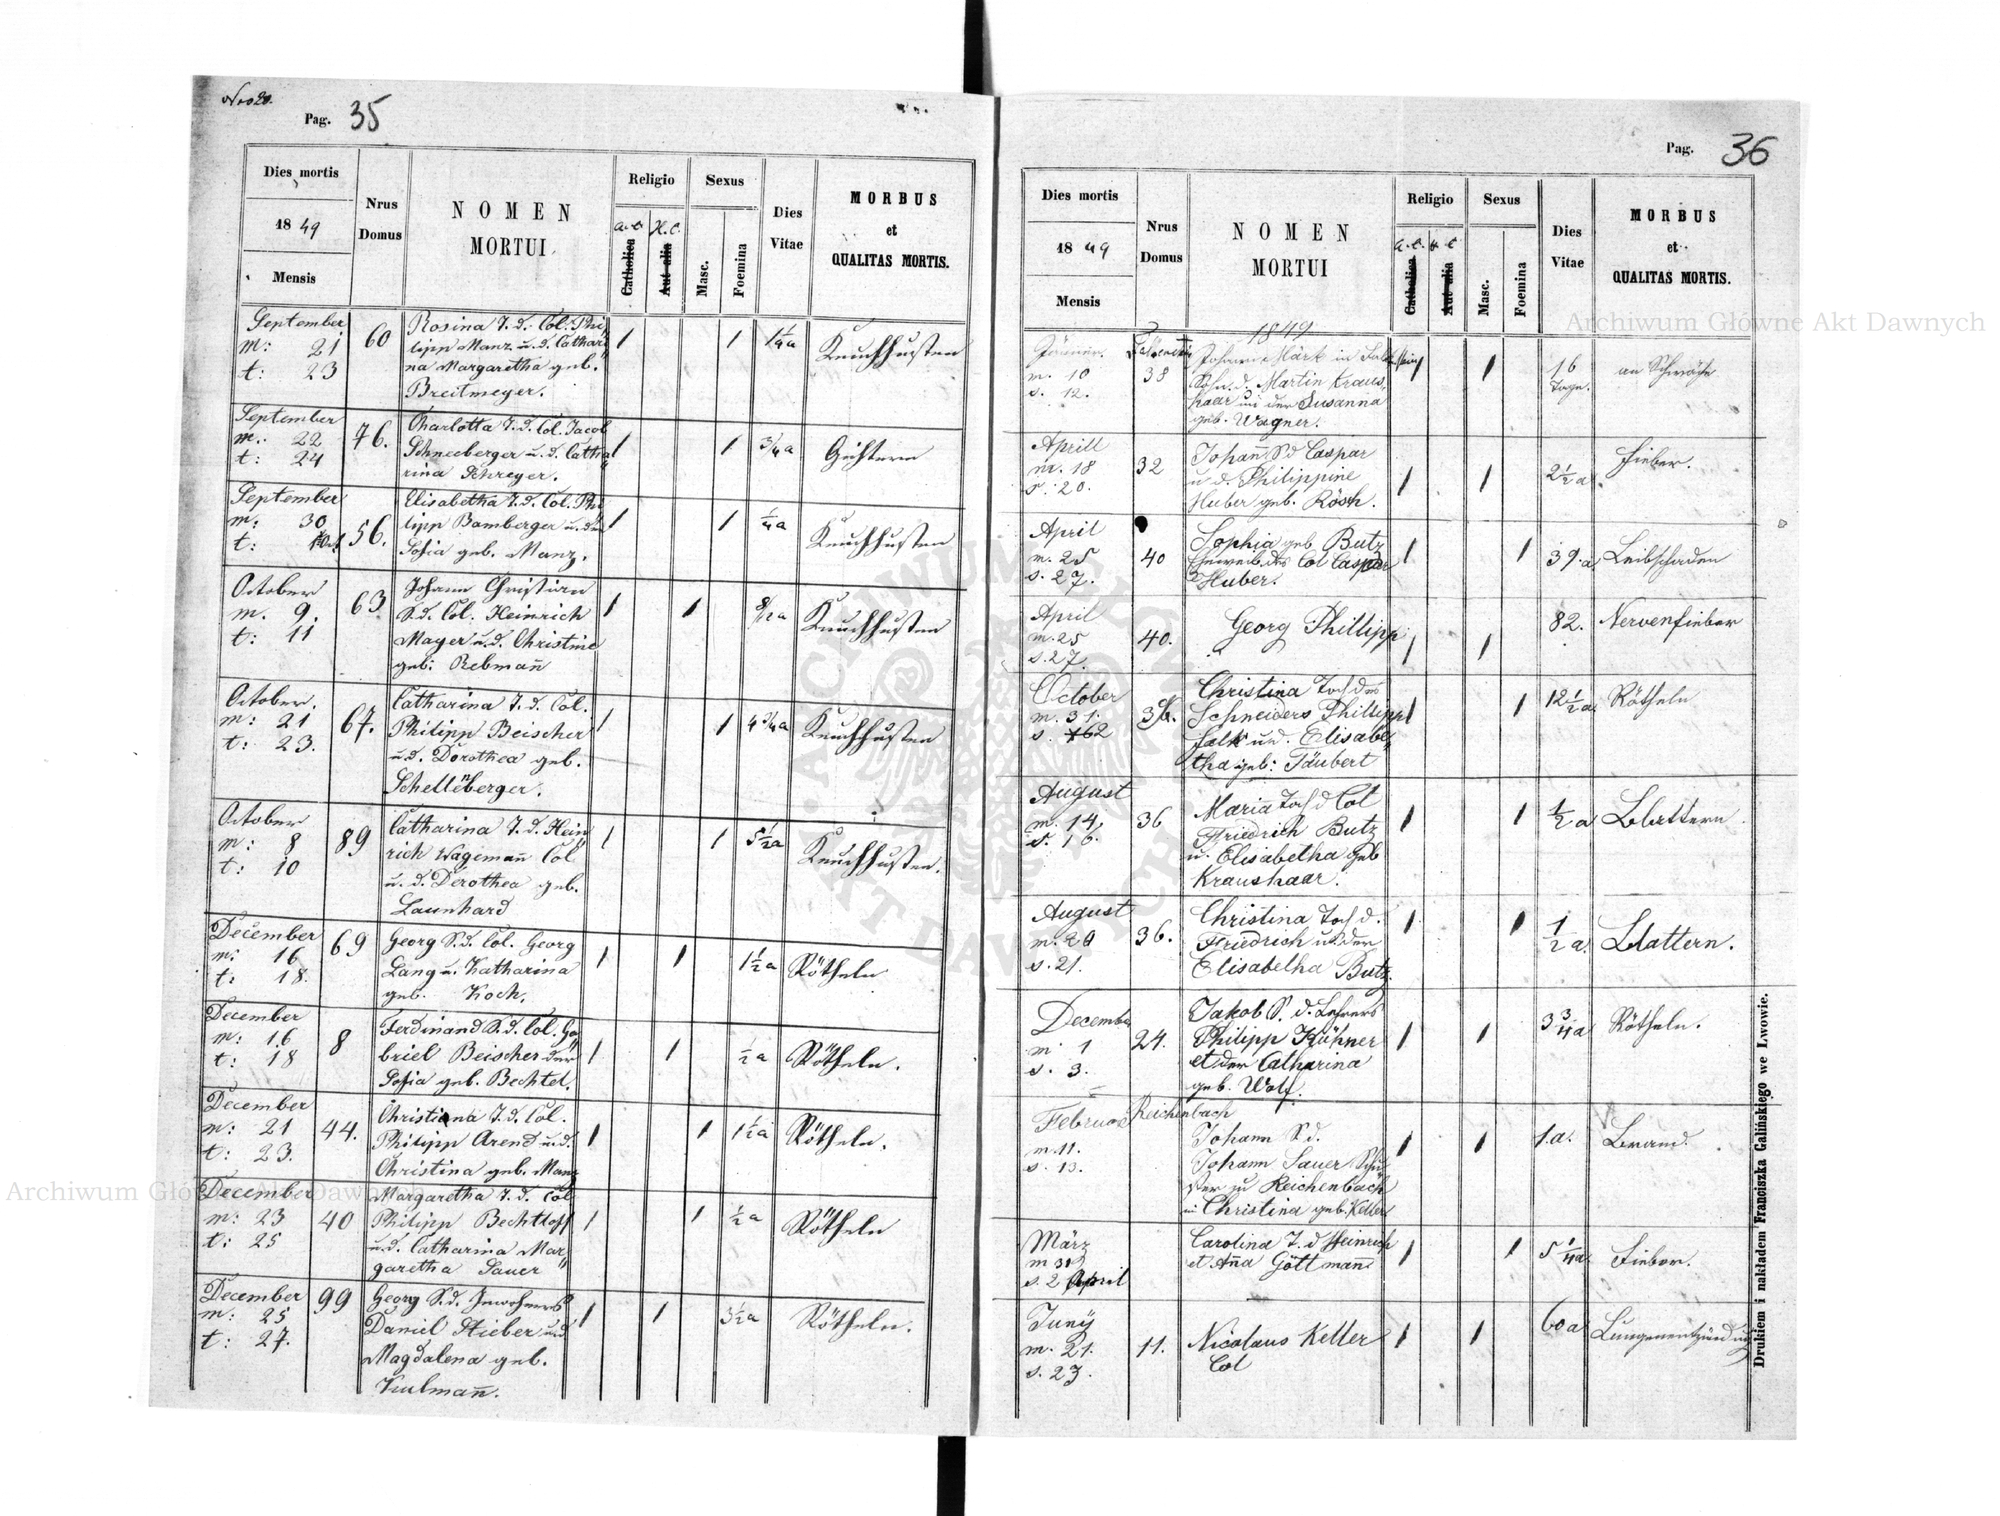 Nro 20.
Pag. 35
Dies mortis
1849
Mensis
Nrus
Domus
NOMEN
MORTUI
Religio
a.c.
Catholica
H.C.
Aut alia
Sexus
Masc.
Foemina
Dies
Vitae
MORBUS
et
QUALITAS MORTIS.
September
m: 21
t: 23
60
Rosina T. d. Col. Phi
lipp Manz u. d. Cathari
na Margaretha geb.
Breitmeyer.
1
1
1 1/4 a
Keuchhusten
September
m: 22
t: 24
76.
Charlotta T. d. Col. Jacob
Schneeberger u. d. Catha
rina Schreyer.
1
1
3/4 a
Gichtern
September
m: 30
t: 1 Oct
56.
Elisabetha T. d. Col. Phi
lipp Bamberger u. der
Sofia geb. Manz.
1
1
1/4 a
Keuchhusten
October
m. 9.
t: 11
63.
Johann Christian
S. d. Col. Heinrich
Mayer u. d. Christine
geb: Rebmañ
1
1
8/12 a
Keuchhusten
October.
m: 21
t: 23.
67.
Catharina T. d. Col.
Philipp Beischer
u. d. Dorothea geb.
Schellenberger.
1
1
4 3/4 a
Keuchhusten
October
m: 8
t: 10
89
Catharina T. d. Hein
rich Wagemañ Col
u. d. Dorothea geb.
Launhard
1
1
5 1/2 a
Keuchhusten.
December
m: 16
t: 18.
69
Georg S. d. Col. Georg
Lang u. Katharina
geb. Koch.
1
1
1 1/2 a
Rötheln
December
m: 16
t: 18
8
Ferdinand S. d. Col. Ga
briel Beischer der
Sofia geb. Bechtel.
1
1
1/2 a
Rötheln.
December
m: 21
t: 23.
44.
Christiana T. d. Col.
Philipp Arend u. d.
Christina geb. Manz
1
1
1 1/2 a
Rötheln.
December
m: 23
t: 25
40
Margaretha T. d. Col
Philipp Bechtloff
u. d. Catharina Mar
garetha Sauer
1
1
1/2 a
Rötheln
December
m: 25
t: 27.
99
Georg S. d. Inwohners
Daniel Stieber u. d.
Magdalena geb.
Kulmañ.
1
1
3 1/2 a
Rötheln.
Pag. 36
Dies mortis
1849
Mensis
Nrus
Domus
NOMEN
MORTUI
Religio
a.c.
Catholica
H.C.
Aut alia
Sexus
Masc.
Foemina
Dies
Vitae
MORBUS
et
QUALITAS MORTIS.
1849
Jänner.
m. 10
s. 12.
Falkenstein
38
Johann Märk in Falkenstein
Sohn d. Martin Kraus
haar und der Susanna
geb. Wagner.
1
1
16
Tage.
an Schwäche
Aprill
m. 18
s. 20.
32
Johañ S. d. Caspar
u d Philippine
Huber geb. Rösch.
1
1
2 1/2 a
Fieber.
April
m. 25
s. 27.
40
Sophia geb Butz
Eheweib des Col Caspar
Huber.
1
1
39. a
Leibschaden
April
m. 25
s. 27.
40.
Georg Phillipp
1
1
82.
Nervenfieber
October
m. 31.
s. 62
36.
Christina Toch des
Schneiders Phillipp
Falk und. Elisabe
tha geb: Täubert
1
1
12 1/2 a
Rötheln
August
m. 14.
s. 16.
36
Maria Toch d Col
Friedrich Butz
u. Elisabetha geb
Kraushaar.
1
1
1/2 a
Blattern
August
m. 20
s. 21.
36.
Christina Toch d.
Friedrich und der
Elisabetha Butz.
1
1
1/2 a.
Blattern.
December
m. 1
s. 3.
24.
Jakob S. d. Lehrers
Philipp Kühner
et der Catharina
geb. Wolf.
1
1
3 3/4 a
Rötheln.
Februar
m. 11.
s. 13.
Reichenbach
Johann S. d.
Johann Sauer Schu
ster zu Reichenbach
u Christina geb. Keller
1
1
1. a.
Brand.
März
m 31
s. 2 April
Carolina T. d Heinrich
et Aña Göttmann
1
1
5 1/4 a
Fieber.
Juny
m. 21.
s. 23.
11.
Nicolaus Keller
Col
1
1
60 a
Lungenentzündung
Drukiem i nakładem Franciszka Galińskiego we Lwowie.
Archiwum Główne Akt Dawnych
Archiwum Główne Akt Dawnych
ARCHIWUM GŁÓWNE AKT DAWNYCH